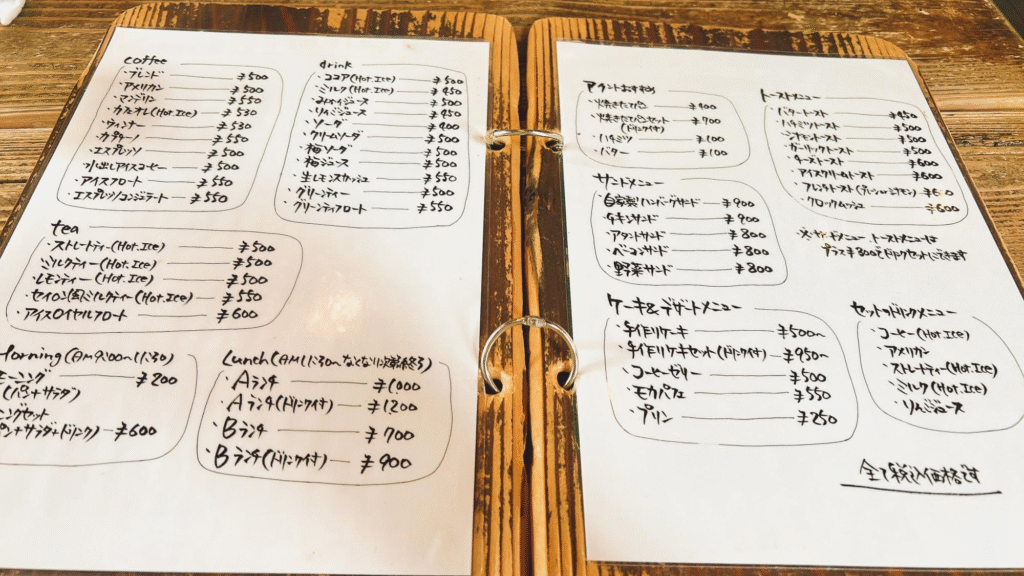 coffee
・ブレンド ¥500
・アメリカン ¥500
・マンデリン ¥550
・カフェオレ(Hot.Ice) ¥530
・ウィンナー ¥530
・カプチーノ ¥550
・エスプレッソ ¥500
・水出しアイスコーヒー ¥500
・アイスフロート ¥550
・エスプレッソコンジェラート ¥550
tea
・ストレートティー(Hot.Ice) ¥500
・ミルクティー(Hot.Ice) ¥500
・レモンティー(Hot.Ice) ¥500
・セイロン風ミルクティー(Hot.Ice) ¥550
・アイスロイヤルフロート ¥600
Morning(AM9:00〜11:30)
モーニング ¥200
(パン+サラダ)
ニングセット
パン+サラダ+ドリンク) ¥600
drink
・ココア(Hot.Ice) ¥500
・ミルク(Hot.Ice) ¥450
・みかんジュース ¥500
・りんごジュース ¥450
・ソーダ ¥400
・クリームソーダ ¥500
・梅ソーダ ¥500
・梅ジュース ¥500
・生レモンスカッシュ ¥550
・グリーンティー ¥500
・グリーンティフロート ¥550
Lunch(AM11:30〜なくなり次第終了)
・Aランチ ¥1000
・Aランチ(ドリンク付) ¥1200
・Bランチ ¥700
・Bランチ(ドリンク付) ¥900
おすすめ
・焼きたてパン ¥400
・焼きたてパンセット ¥700
(ドリンク付)
・ハチミツ ¥100
・バター ¥100
サンドメニュー
・自家製ハンバーグサンド ¥900
・チキンサンド ¥900
・サンド ¥800
・ベーコンサンド ¥800
・野菜サンド ¥800
ケーキ&デザートメニュー
・手作りケーキ ¥500〜
・手作りケーキセット(ドリンク付) ¥950〜
・コーヒーゼリー ¥500
・モカパフェ ¥550
・プリン ¥250
トーストメニュー
・バタートースト ¥450
・ハチミツトースト ¥500
・シナモントースト ¥500
・ガーリックトースト ¥500
・チーズトースト ¥600
・アイスクリームトースト ¥600
・フレンチトースト ¥600
・クロックムッシュ ¥600
※サンドメニュー トーストメニューは
プラス¥300でドリンクセットにできます
セットのドリンクメニュー
・コーヒー(Hot.Ice)
・アメリカン
・ストレートティ(Hot.Ice)
・ミルク(Hot.Ice)
・りんごジュース
全て税込価格です